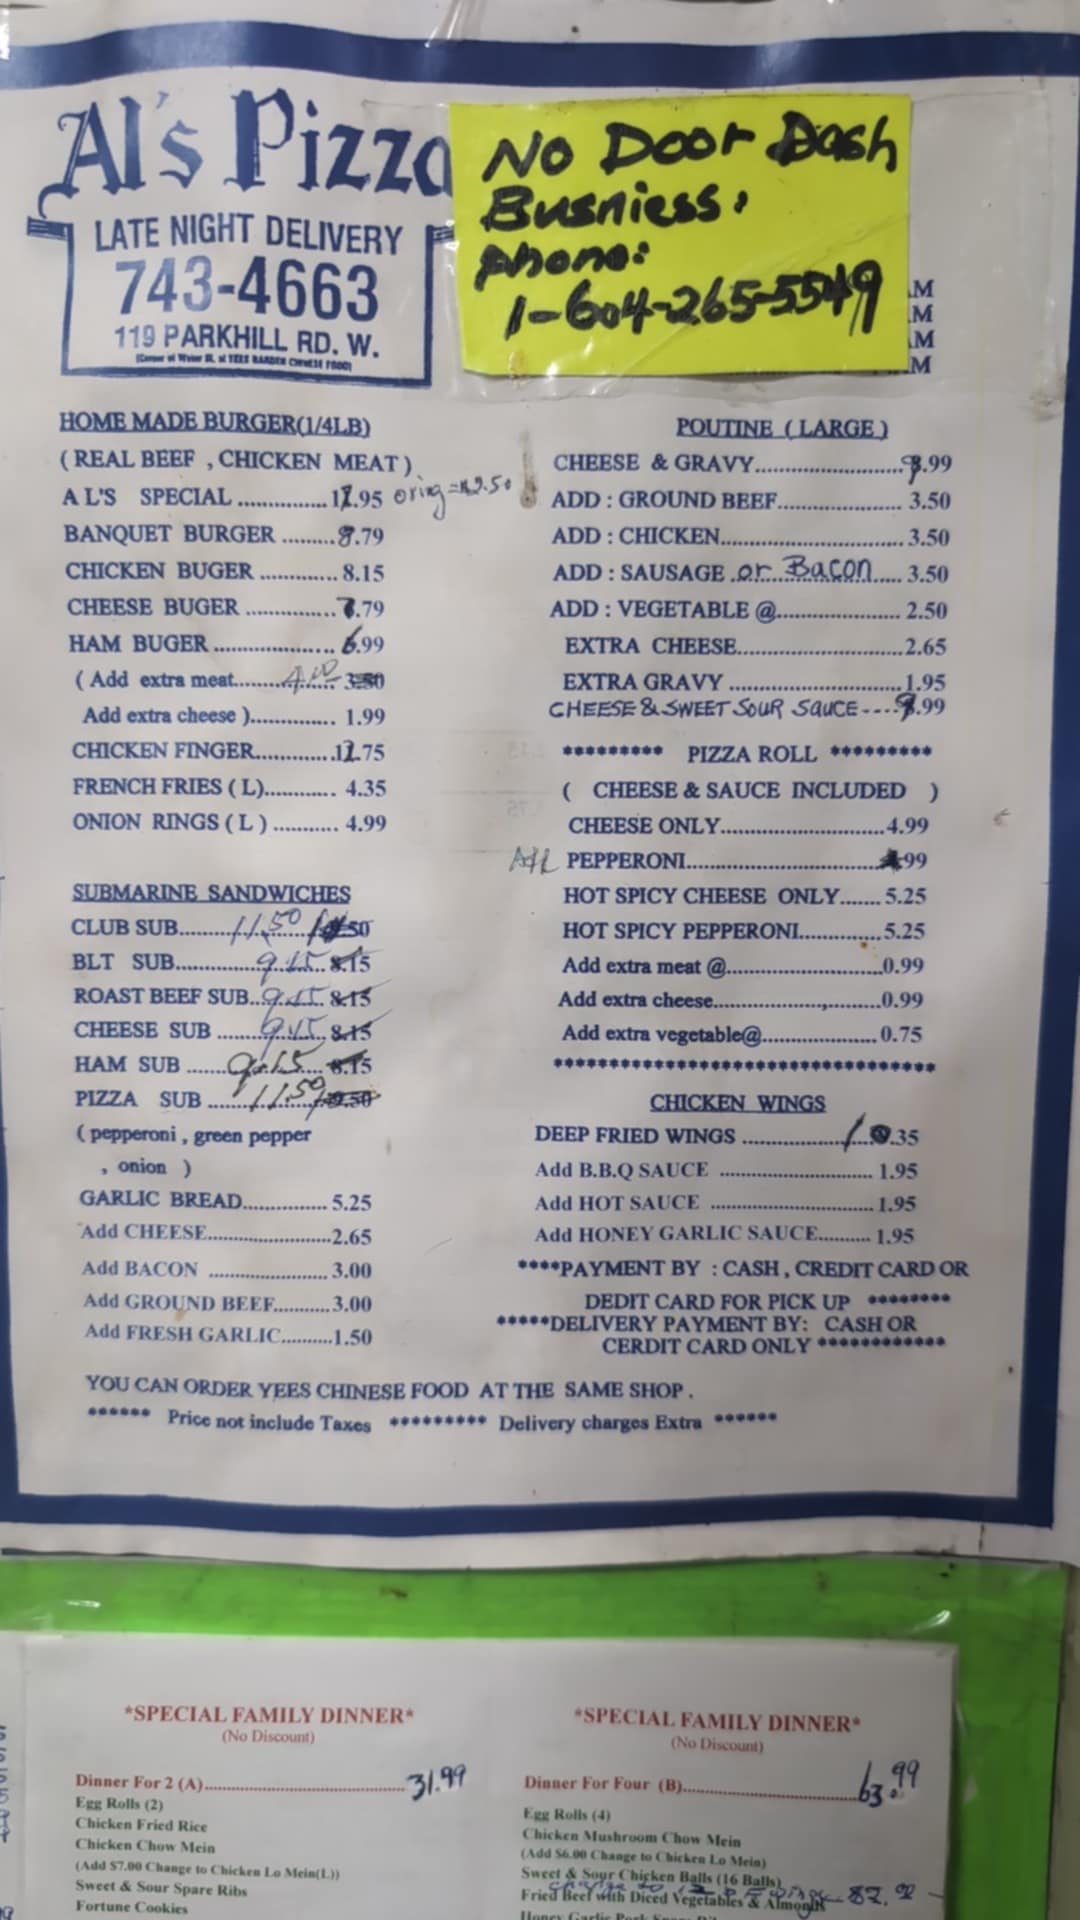 Al's Pizza
No Door Dash
Busniess:
phone:
1-604-265-5549
LATE NIGHT DELIVERY
743-4663
119 PARKHILL RD. W.
(Corner of Water St. at YEES GARDEN CHINESE FOOD)
AM
AM
AM
PM
HOME MADE BURGER(1/4LB)
( REAL BEEF , CHICKEN MEAT )
A L'S SPECIAL ............... 12.95 oring = 2.50
BANQUET BURGER .........8.79
CHICKEN BUGER ............. 8.15
CHEESE BUGER ...............7.79
HAM BUGER .................... 6.99
( Add extra meat.......4.00....... 3.50
Add extra cheese ).............. 1.99
CHICKEN FINGER.............12.75
FRENCH FRIES ( L)............ 4.35
ONION RINGS ( L ) ........... 4.99
SUBMARINE SANDWICHES
CLUB SUB........11.50.......50
BLT SUB...............9.15... 8.15
ROAST BEEF SUB..9.15.. 8.15
CHEESE SUB .......9.15.. 8.15
HAM SUB ......9.15... 8.15
PIZZA SUB .......11.50 .50
( pepperoni , green pepper
, onion )
GARLIC BREAD.............. 5.25
Add CHEESE.....................2.65
Add BACON .................... 3.00
Add GROUND BEEF...........3.00
Add FRESH GARLIC.........1.50
POUTINE ( LARGE )
CHEESE & GRAVY.........................9.99
ADD : GROUND BEEF..................... 3.50
ADD : CHICKEN............................... 3.50
ADD : SAUSAGE or Bacon ..... 3.50
ADD : VEGETABLE @..................... 2.50
EXTRA CHEESE............................2.65
EXTRA GRAVY .............................1.95
CHEESE & SWEET SOUR SAUCE ----9.99
********* PIZZA ROLL *********
( CHEESE & SAUCE INCLUDED )
CHEESE ONLY............................4.99
PEPPERONI.................................99
HOT SPICY CHEESE ONLY....... 5.25
HOT SPICY PEPPERONI..............5.25
Add extra meat @..........................0.99
Add extra cheese............................0.99
Add extra vegetable@................... 0.75
***********************************
CHICKEN WINGS
DEEP FRIED WINGS .................1 .35
Add B.B.Q SAUCE .......................... 1.95
Add HOT SAUCE ............................ 1.95
Add HONEY GARLIC SAUCE......... 1.95
****PAYMENT BY : CASH , CREDIT CARD OR
DEDIT CARD FOR PICK UP ********
*****DELIVERY PAYMENT BY: CASH OR
CERDIT CARD ONLY ************
YOU CAN ORDER YEES CHINESE FOOD AT THE SAME SHOP .
****** Price not include Taxes ********* Delivery charges Extra ******
*SPECIAL FAMILY DINNER*
(No Discount)
Dinner For 2 (A)................................................. 31.99
Egg Rolls (2)
Chicken Fried Rice
Chicken Chow Mein
(Add $7.00 Change to Chicken Lo Mein(L))
Sweet & Sour Spare Ribs
Fortune Cookies
*SPECIAL FAMILY DINNER*
(No Discount)
Dinner For Four (B)...........................................63.99
Egg Rolls (4)
Chicken Mushroom Chow Mein
(Add $6.00 Change to Chicken Lo Mein)
Sweet & Sour Chicken Balls (16 Balls)
change to wings 82.00
Fried Beef with Diced Vegetables & Almonds